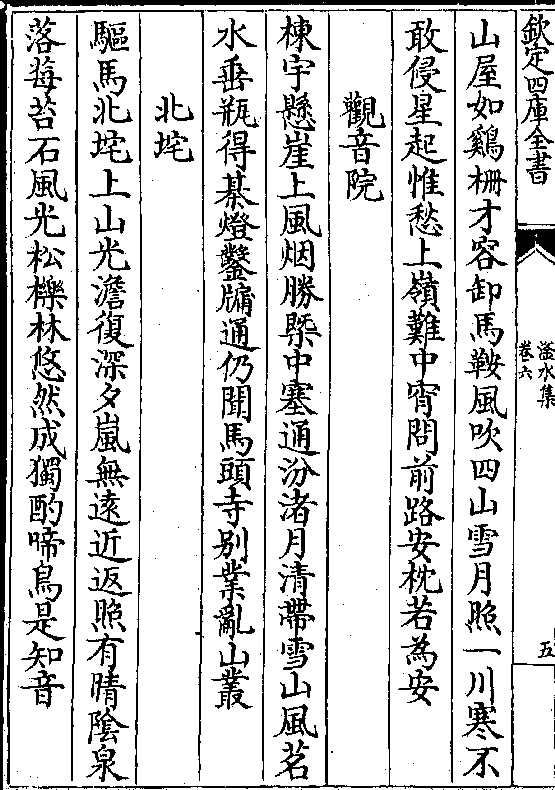 欽定四庫全書
滏水集
卷六
五
山屋如鷄柵才容卸馬鞍風吹四山雪月照一川寒不
敢侵星起惟愁上嶺難中宵問前路安枕若為安
觀音院
棟宇懸崖上風烟勝槩中塞通汾渚月清帶雪山風茗
水垂瓶得棊燈鑿牖通仍聞馬頭寺别業亂山叢
北坨
驅馬北坨上山光澹復深夕嵐無逺近返照有晴隂泉
落莓苔石風光松櫟林悠然成獨酌啼鳥是知音